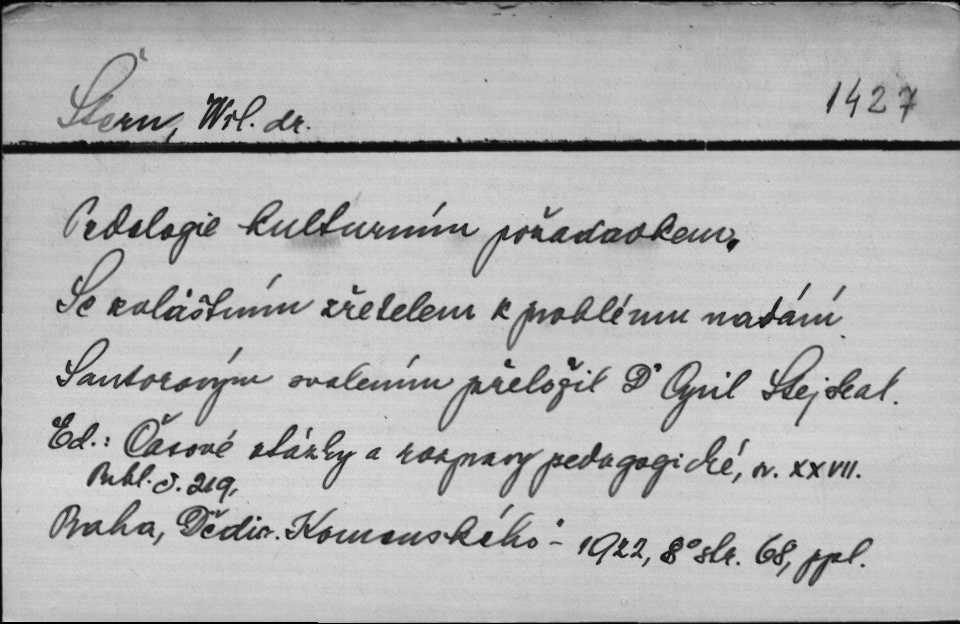 Štern, Wil. dr.
1427
Pedologie kulturním požadavkem.
Se zvláštním zřetelem k problému nadání
S autorovým svolením přeložil Dr Cyril Stejskal.
Ed.: Časové otázky a rozpravy pedagogické, sv. XXVII.
Bibl. č. 219.
Praha, Dědic. Komenského - 1922, 8° str. 68, ppl.